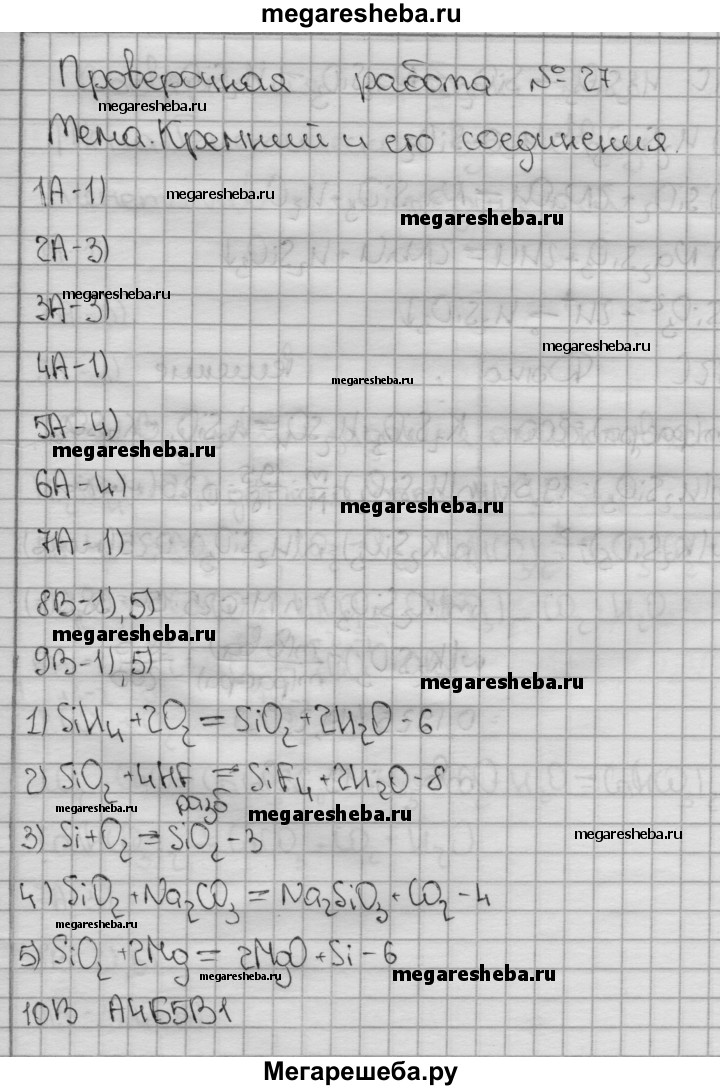 megaresheba.ru
Проверочная работа № 27
megaresheba.ru
Тема. Кремний и его соединения.
1А-1)
megaresheba.ru
megaresheba.ru
2А-3)
megaresheba.ru
3А-3)
megaresheba.ru
4А-1)
megaresheba.ru
5А-4)
megaresheba.ru
6А-4)
megaresheba.ru
7А-1)
8В-1), 5)
megaresheba.ru
9В-1), 5)
megaresheba.ru
1) SiH₄+2O₂=SiO₂+2H₂O-6
2) SiO₂+4HF=SiF₄+2H₂O-8
megaresheba.ru
разб
megaresheba.ru
3) Si+O₂=SiO₂-3
megaresheba.ru
4) SiO₂+Na₂CO₃=Na₂SiO₃+CO₂-4
megaresheba.ru
5) SiO₂+2Mg=2MgO+Si-6
megaresheba.ru
megaresheba.ru
10В А4Б5В1
Мегарешеба.ру